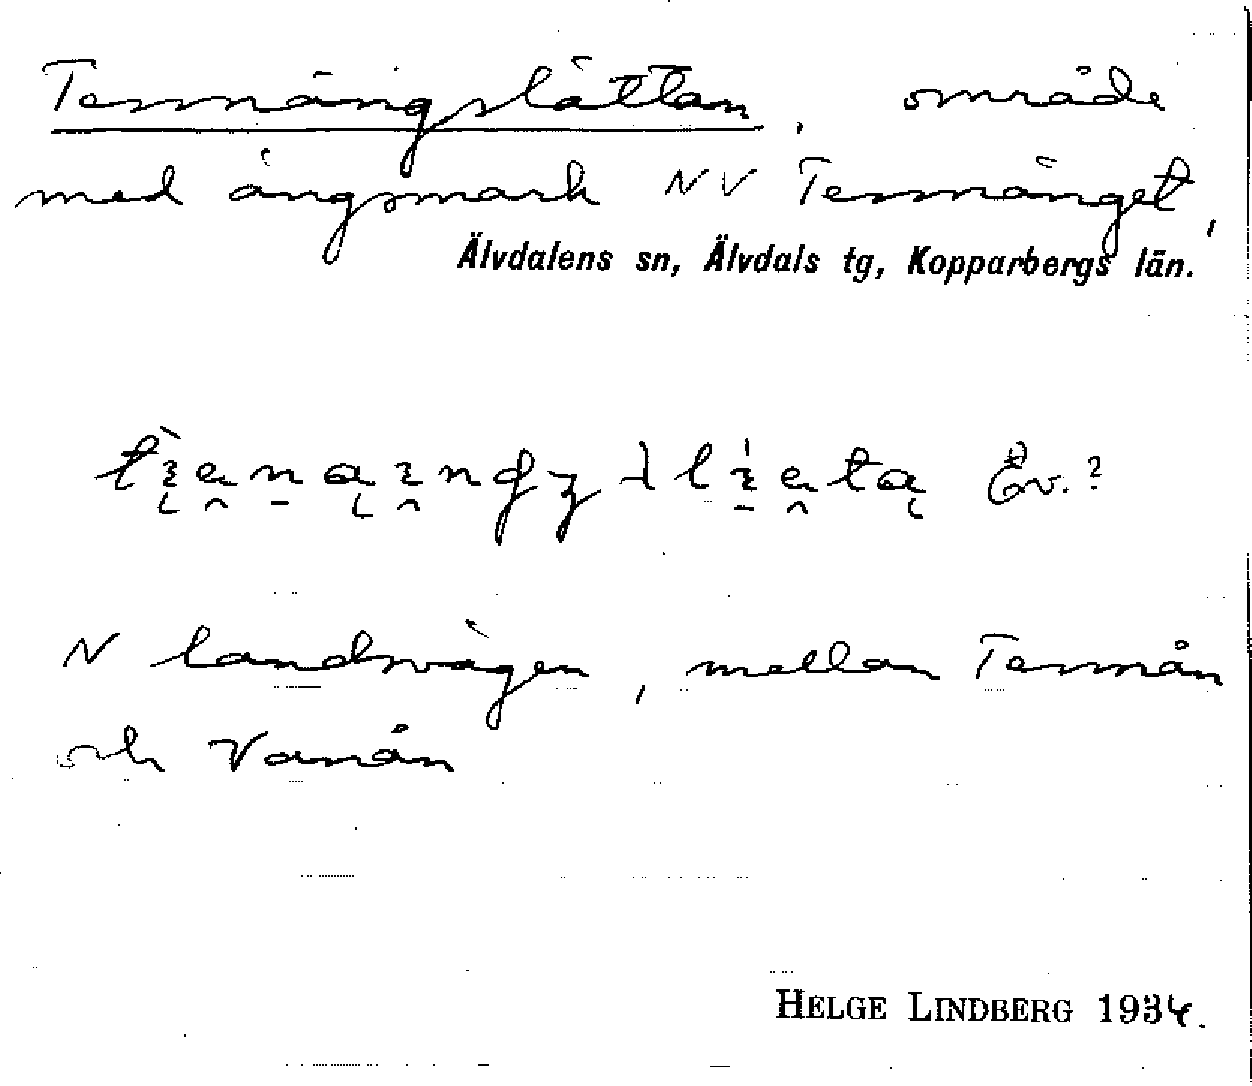 Tennängslättan, område
med ängsmark NV Tennänget,
Älvdalens sn, Älvdals tg, Kopparbergs län.
Ev.?
N landsvägen, mellan Tennån
och Vanån
HELGE LINDBERG 1934.